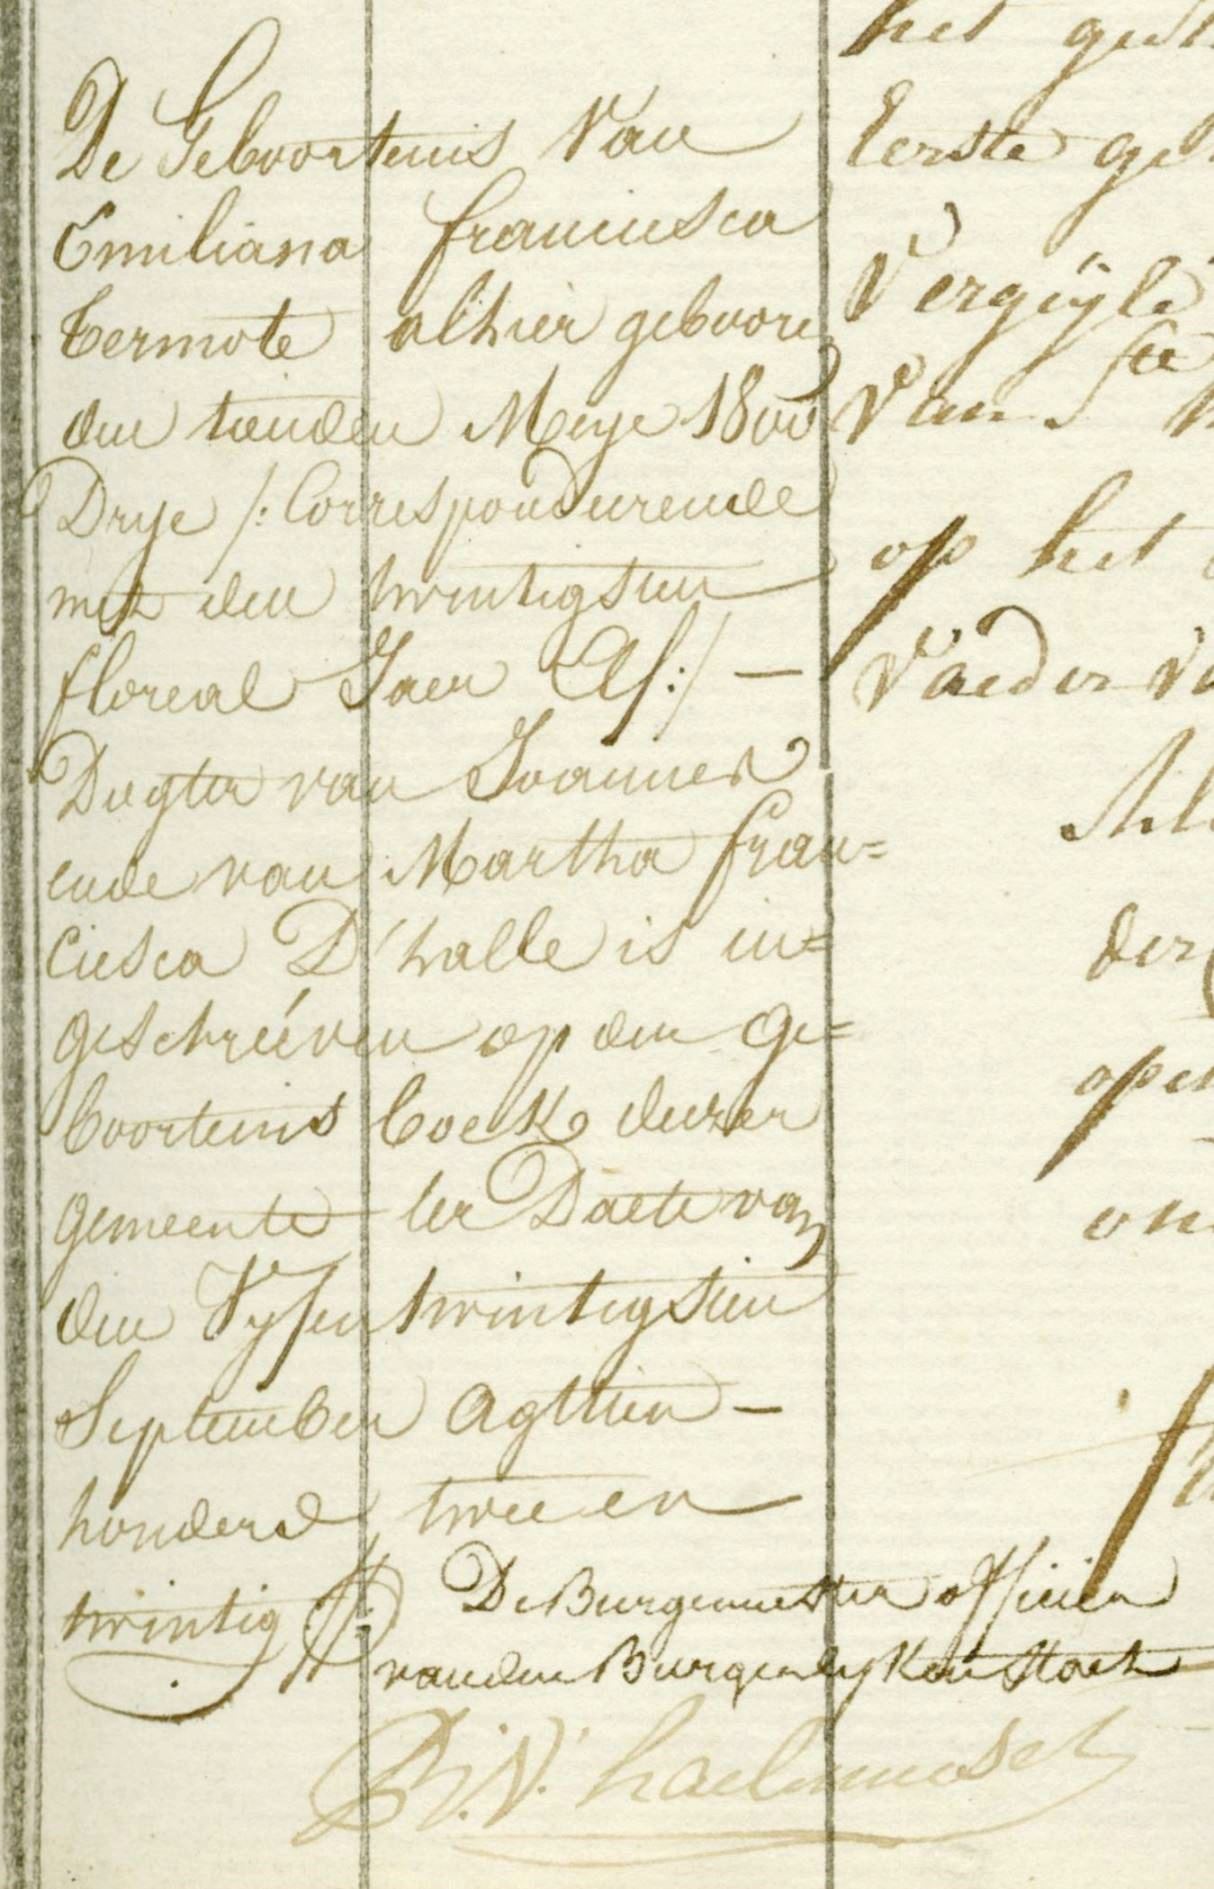 De Geboortenis Van
Emiliana franciesca
termote alhier geboore
den tienden Meye 1800
Drye /: Correspondeerende
met den twintigsten
floreal Jaer Elf :/ —
Dogter van Joannes
ende van Martha fran=
ciesca D'halle is in=
geschreéven op den ge=
boortenis boek deezer
gemeente ter Daete van
den Vyfentwintigsten
September agttien —
honderd twee en
twintig
De Burgemeester officier
van den Burgerlyken Staet
het
Eerste ge
Vergüyle
Van
op het
Vaeder va
der